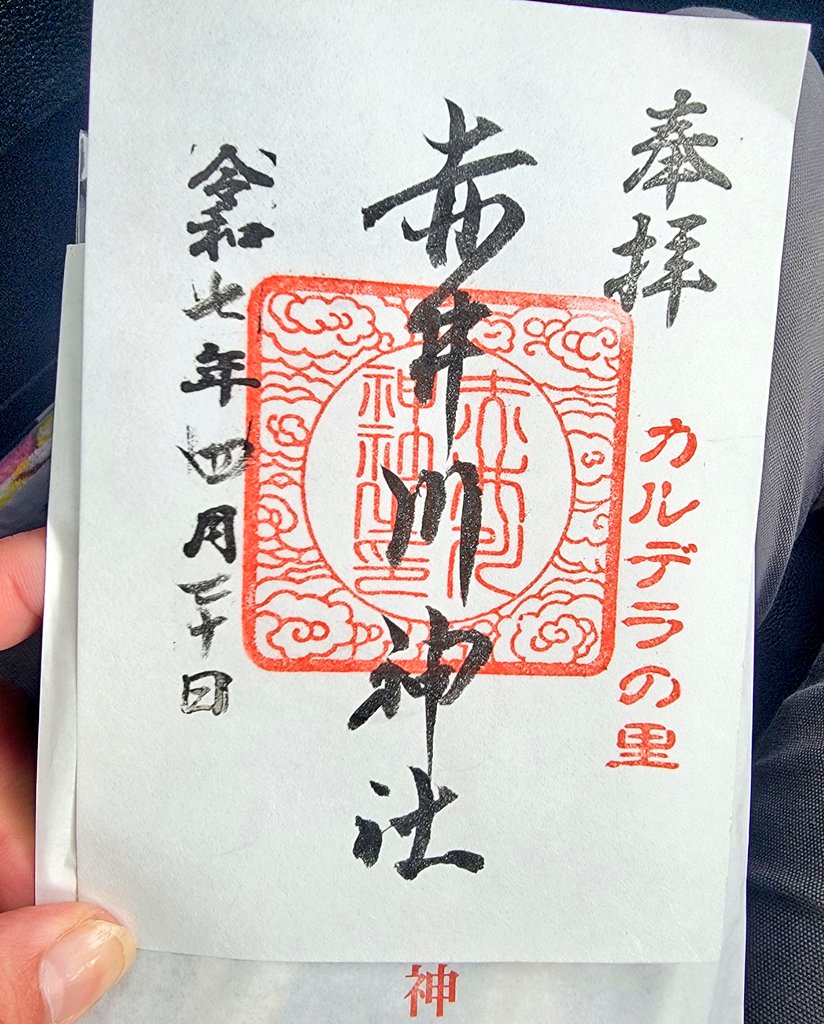 奉拝
カルデラの里
赤井川神社
赤井川
神社之印
令和七年四月二十日
神